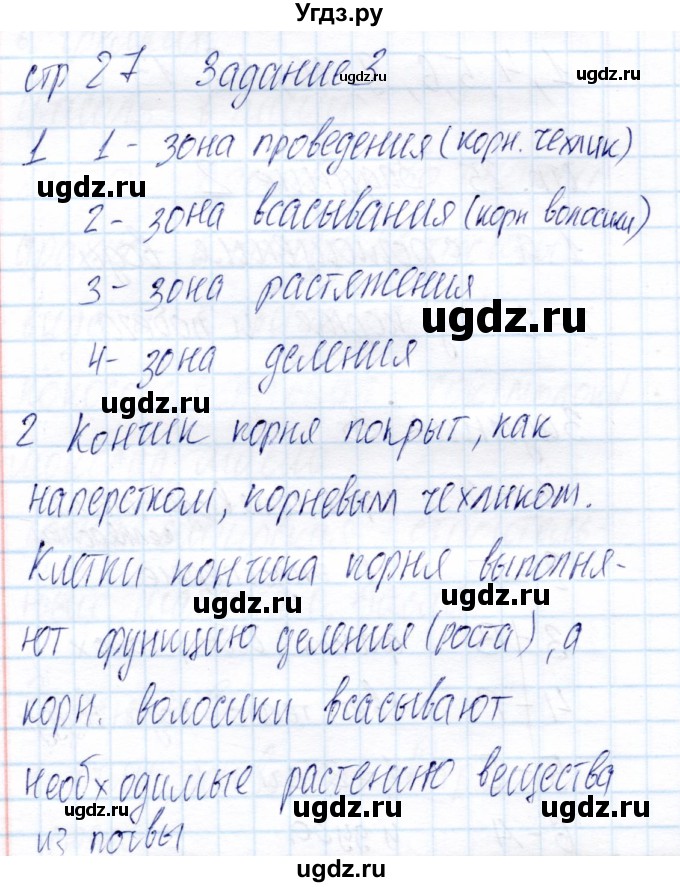 Угдз.ру
стр 27 Задание 3
ugdz.ru ugdz.ru
1 1- зона проведения (корн. чехлик)
ugdz.ru
2- зона всасывания (корн волосики)
3- зона растяжения
ugdz.ru
4- зона деления
ugdz.ru
2 Кончик корня покрыт, как
ugdz.ru
наперстком, корневым чехликом.
Клетки кончика корня выполня-
ugdz.ru ugdz.ru
ют функцию деления (роста), а
корн. волосики всасывают
ugdz.ru
необходимые растению вещества
ugdz.ru ugdz.ru ugdz.ru
из почвы
ugdz.ru